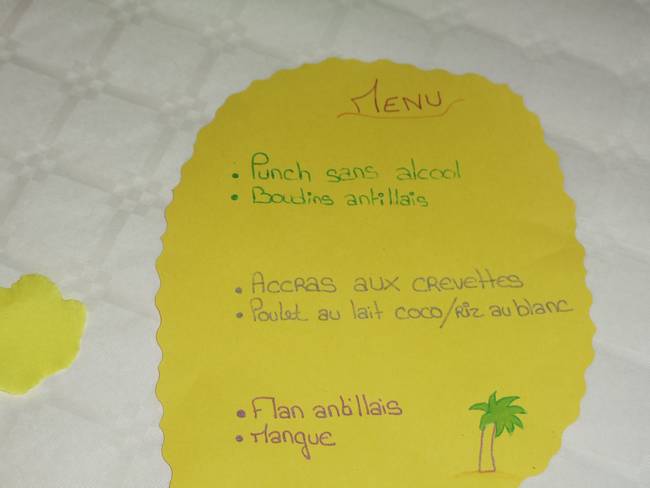 MENU
• Punch sans alcool
• Boudins antillais
• Accras aux crevettes
• Poulet au lait coco/Riz au blanc
• Flan antillais
• Mangue